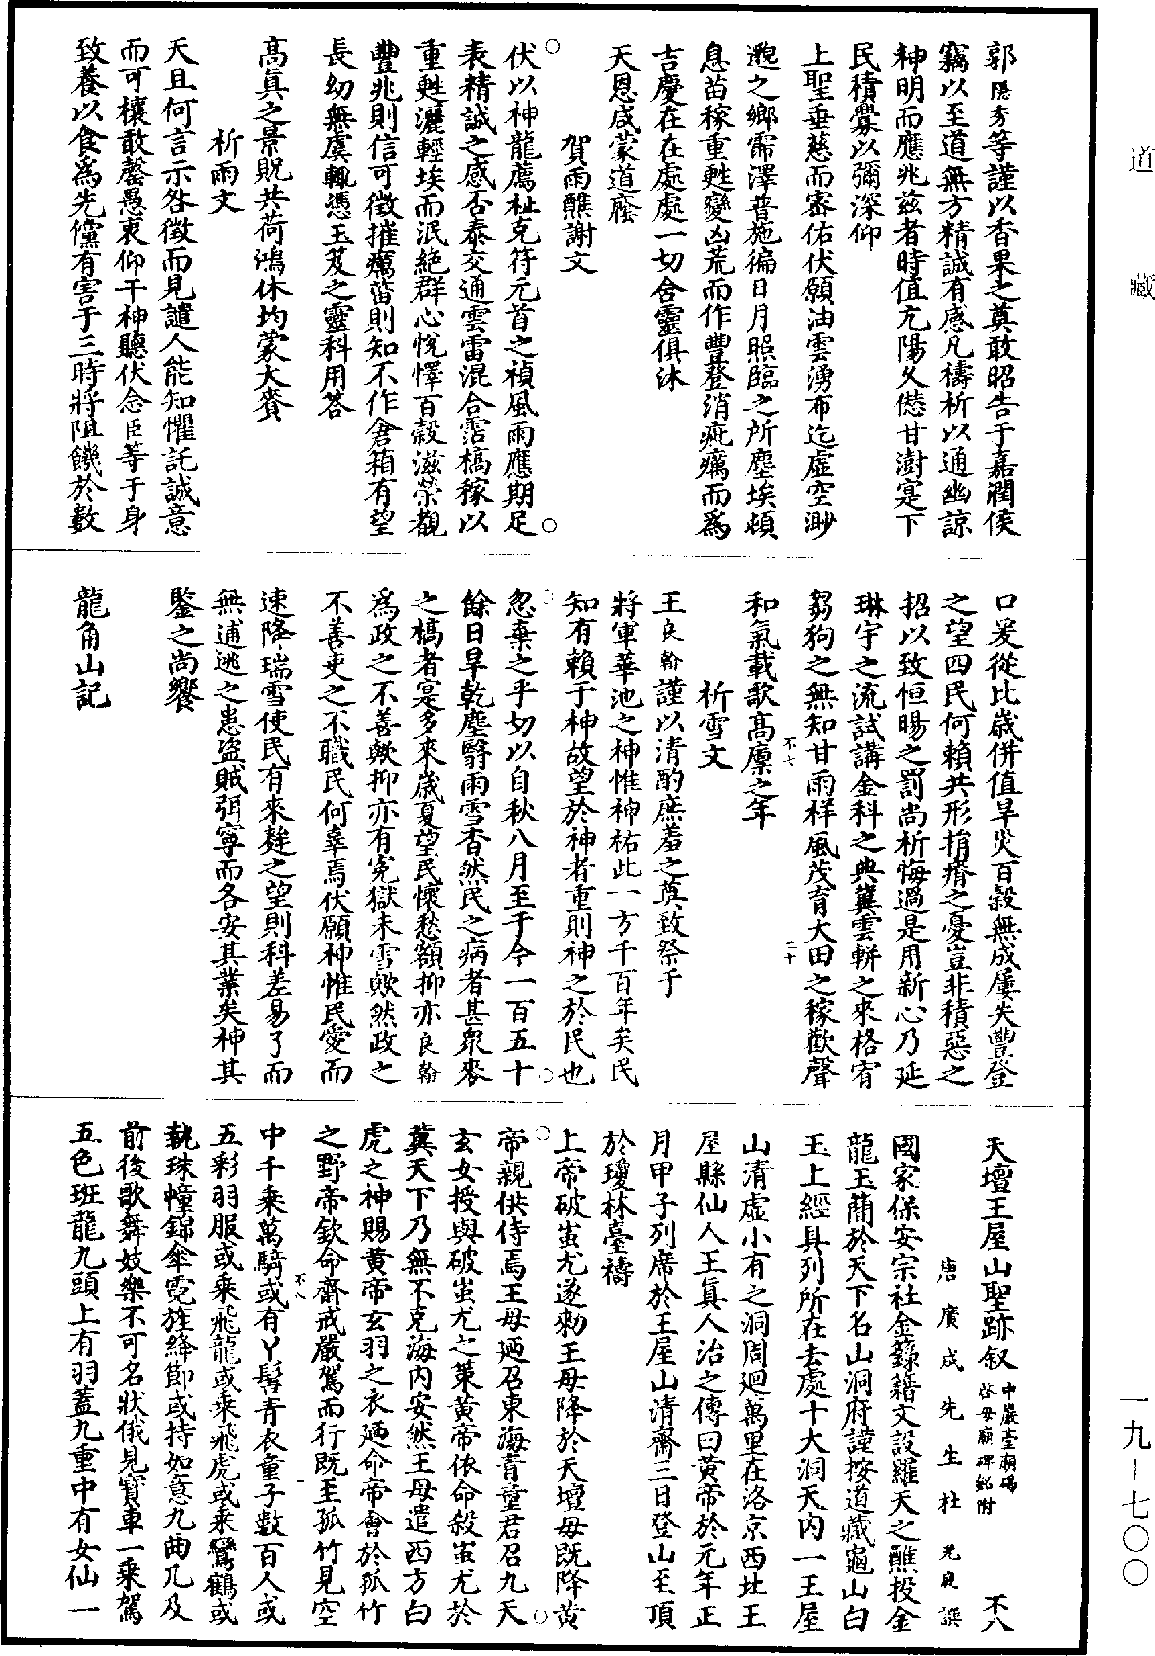 道藏
郭陽秀等謹以香果之奠敢昭告于嘉潤侯
竊以至道無方精誠有感凡禱祈以通幽諒
神明而應兆茲者時值亢陽久愆甘澍寔下
民積釁以彌深仰
上聖垂慈而密佑伏願油雲湧布迄虛空渺
邈之鄉霈澤普施徧日月照臨之所塵埃頓
息苗稼重甦變凶荒而作豐登消疵癘而為
吉慶在在處處一切含靈俱沐
天恩咸蒙道廕
賀雨醮謝文
伏以神龍薦祉克符元首之禎風雨應期足
表精誠之感否泰交通雲雷混合霑槁稼以
重甦灑輕埃而泯絕群心悅懌百穀滋榮觀
豐兆則信可徵摧癘菑則知不作倉箱有望
長幼無虞輒憑玉笈之靈科用答
高真之景貺共荷鴻休均蒙大賚
祈雨文
天且何言示咎徵而見譴人能知懼託誠意
而可禳敢罄愚衷仰干神聽伏念臣等于身
致養以食為先儻有害于三時將阻饑於數
口爰從比歲併值旱災百穀無成屢失豐登
之望四民何賴共形捐瘠之憂豈非積惡之
招以致恒暘之罰尚祈悔過是用新心乃延
琳宇之流試講金科之典冀雲軿之來格宥
芻狗之無知甘雨祥風茂育大田之稼歡聲
和氣載歌高廩之年
不七
二十
祈雪文
王良翰謹以清酌庶羞之奠致祭于
將軍華池之神惟神祐此一方千百年矣民
知有賴于神故望於神者重則神之於民也
忽棄之乎切以自秋八月至于今一百五十
餘日旱乾塵翳雨雪杳然民之病者甚眾麥
之槁者寔多來歲夏望民懷愁額抑亦良翰
為政之不善歟抑亦有冤獄未雪歟然政之
不善吏之不職民何辜焉伏願神惟民愛而
速降瑞雪使民有來麰之望則科差易了而
無逋逃之患盜賊弭寧而各安其業矣神其
鑒之尚饗
龍角山記
天壇王屋山聖跡叙 中巖臺廟碣啓母廟碑銘附 不八
唐廣成先生杜光庭譔
國家保安宗社金籙籍文設羅天之醮投金
龍玉簡於天下名山洞府謹按道藏龜山白
玉上經具列所在去處十大洞天內一王屋
山清虛小有之洞周迴萬里在洛京西北王
屋縣仙人王真人治之傳曰黃帝於元年正
月甲子列席於王屋山清齋三日登山至頂
於瓊林臺禱
上帝破蚩尤遂勑王母降於天壇母既降黃
帝親供侍焉王母廼召東海青童君召九天
玄女授與破蚩尤之策黃帝依命殺蚩尤於
冀天下乃無不克海內安然王母遣西方白
虎之神賜黃帝玄羽之衣廼命帝會於孤竹
之野帝欽命齋戒嚴駕而行既至孤竹見空
不八
一
中千乘萬騎或有丫髻青衣童子數百人或
五彩羽服或乘飛龍或乘飛虎或乘鸞鶴或
執珠幢錦傘霓旌絳節或持如意九曲几及
前後歌舞妓樂不可名狀俄見寶車一乘駕
五色班龍九頭上有羽蓋九重中有女仙一
一九—七〇〇